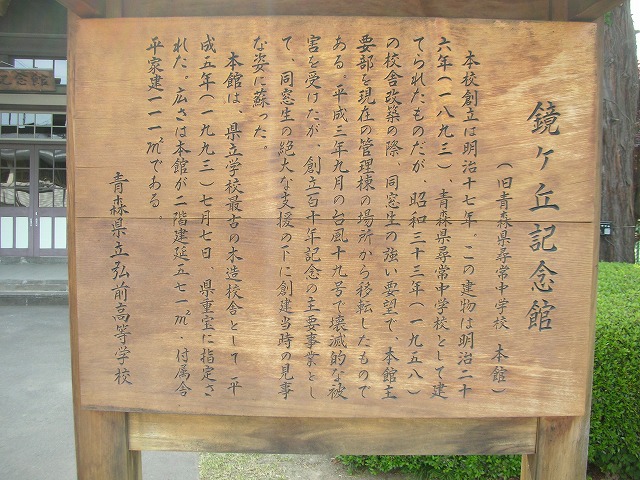 鏡ヶ丘記念館
（旧青森県尋常中学校　本館）
本校創立は明治十七年。この建物は明治二十
六年（一八九三）、青森県尋常中学校として建
てられたものだが、昭和三十三年（一九五八）
の校舎改築の際、同窓生の強い要望で、本館主
要部を現在の管理棟の場所から移転したもので
ある。平成三年九月の台風十九号で壊滅的な被
害を受けたが、創立百十年記念の主要事業とし
て、同窓生の絶大な支援の下に創建当時の見事
な姿に蘇った。
本館は、県立学校最古の木造校舎として、平
成五年（一九九三）七月七日、県重宝に指定さ
れた。広さは本館が二階建延五七一㎡、付属舎
平家建一一一㎡である。
青森県立弘前高等学校
記念館